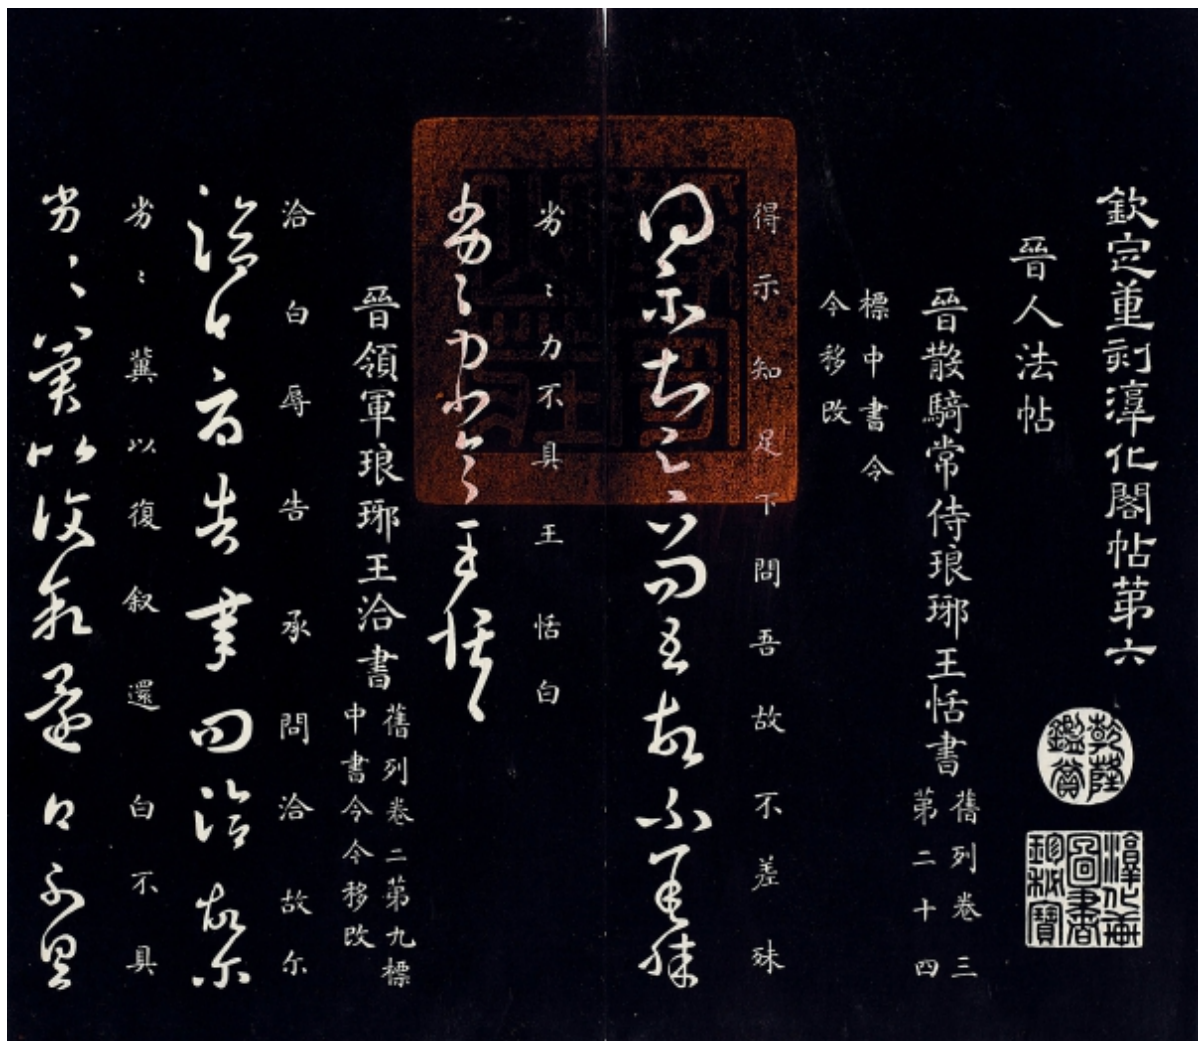 欽定重刻淳化閣帖第六
乾隆鑑賞
淳化軒
圖書
珍秘寶
晉人法帖
晉散騎常侍琅琊王恬書
舊列卷三
第二十四
標中書令
今移改
得示知足下問吾故不差殊
得示知足下問吾故不差殊
劣〻力不具王恬白
劣〻力不具王恬白
晉領軍琅琊王洽書
舊列卷二第九標
中書令今移改
洽白辱告承問洽故尔
洽白辱告承問洽故尔
劣〻冀以復叙還白不具
劣〻冀以復叙還白不具